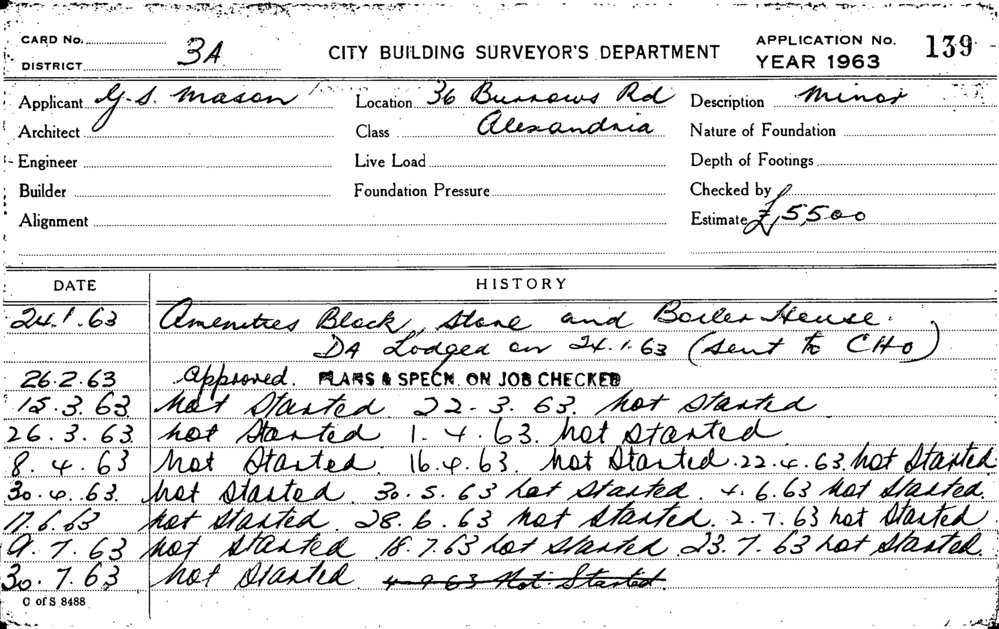 CARD No. 3A CITY BUILDING SURVEYOR'S DEPARTMENT APPLICATION No. 139
DISTRICT YEAR 1963
Applicant G.S. Mason Location 36 Burrows Rd Description Minor
Architect Class Alexandria Nature of Foundation
Engineer Live Load Depth of Footings
Builder Foundation Pressure Checked by
Alignment Estimate £5,500
DATE HISTORY
24.1.63 Amenities Block, Store and Boiler House.
DA Lodged on 24.1.63 (sent to CHO)
26.2.63 Approved. PLANS & SPECN. ON JOB CHECKED
15.3.63 Not Started 22-3.63. Not Started
26.3.63. Not Started. 1.4.63. Not Started
8.4.63 Not Started. 16.4.63. Not Started. 22.4.63. Not Started.
30.4.63. Not Started. 30.5.63 Not Started. 4.6.63 Not Started.
17.6.63 Not Started. 28.6.63 Not Started. 2.7.63 Not Started
9.7.63 Not Started. 18.7.63 Not Started. 23.7.63 Not Started.
30.7.63 Not Started 4-9-63 Not Started.
C of S 8488